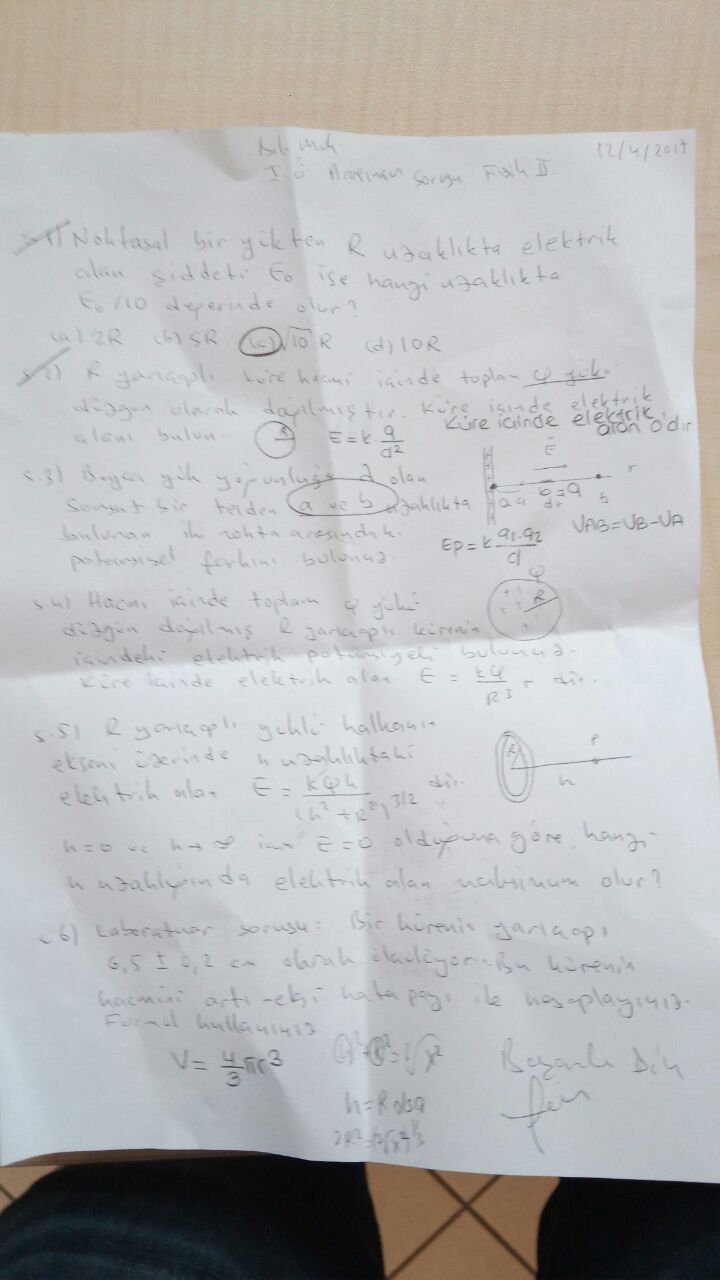 Bil. Müh. 12/4/2017
I.Ö Arasınav Sorusu Fizik II.
S.1) Noktasal bir yükten R uzaklıkta elektrik
alan şiddeti E₀ ise hangi uzaklıkta
E₀/10 değerinde olur?
(a) 2R (b) 5R (c) √10 R (d) 10R
S.2) R yarıçaplı küre hacmi içinde toplam Q yükü
düzgün olarak dağılmıştır. Küre içinde elektrik
alanı bulun. R E=k.q/d²
Küre içinde elektrik
alan 0'dır
S.3) Boyca yük yoğunluğu λ olan
sonsuz bir telden a ve b uzaklıkta
bulunan iki nokta arasındaki
potansiyel farkını bulunuz.
E r
a b
dr
Ep=k q1.q2/d VAB=VB-VA
S.4) Hacmi içinde toplam Q yükü
düzgün dağılmış R yarıçaplı kürenin
içindeki elektrik potansiyeli bulunuz.
Küre içinde elektrik alan E = kQ/R³ r dir.
Q
R
S.5) R yarıçaplı yüklü halkanın
ekseni üzerinde h uzaklıktaki
elektrik alan E = kQh/(h²+R²)^3/2 dir.
R P
h
h=0 ve h→∞ için E=0 olduğuna göre, hangi
h uzaklığında elektrik alan maksimum olur?
S.6) Laboratuar sorusu: Bir kürenin yarıçapı
6,5 ± 0,2 cm olarak ölçülüyor. Bu kürenin
hacmini artı-eksi hata payı ile hesaplayınız.
Formül kullanınız
V= 4/3 πr³
h=R olsa
Başarılar